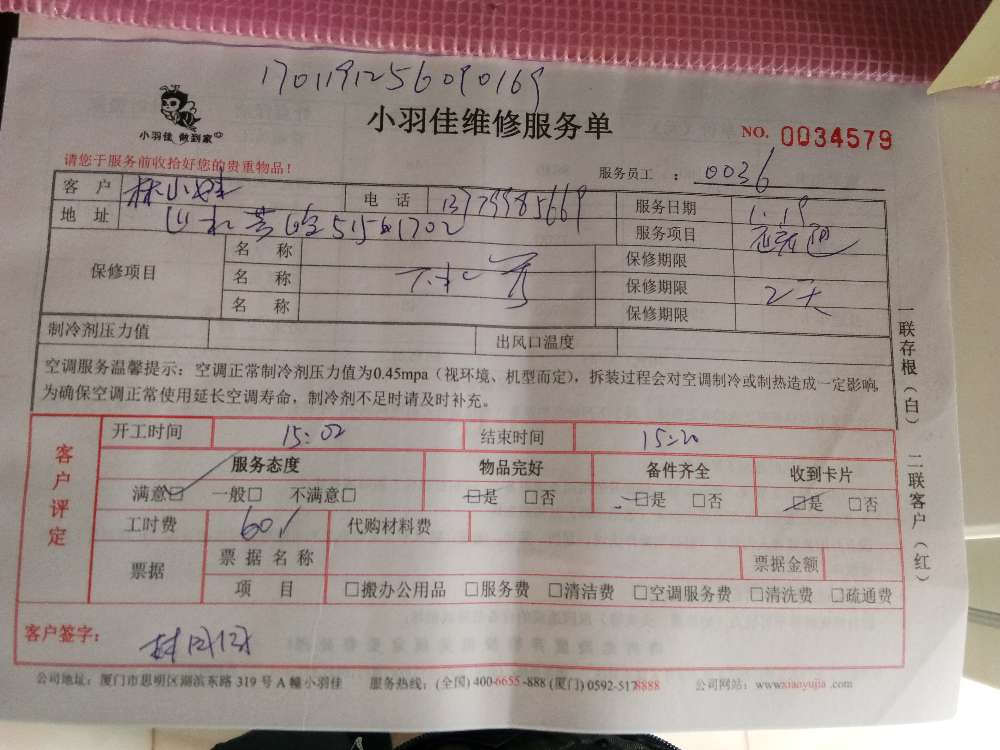 1701191256090169
小羽佳 做到家
小羽佳维修服务单
NO. 0034579
请您于服务前收拾好您的贵重物品！
服务员工 ： 0036
客 户 电 话 13779985669 服务日期 1.19
地 址 服务项目
保修项目 名 称 保修期限
名 称 下水管 保修期限 2天
名 称 保修期限
制冷剂压力值 出风口温度
空调服务温馨提示：空调正常制冷剂压力值为0.45mpa（视环境、机型而定），拆装过程会对空调制冷或制热造成一定影响，
为确保空调正常使用延长空调寿命，制冷剂不足时请及时补充。
一联存根（白） 二联客户（红）
客户评定
开工时间 15:02 结束时间 15:20
服务态度 物品完好 备件齐全 收到卡片
满意☑ 一般□ 不满意□ ☑是 □否 ☑是 □否 ☑是 □否
工时费 60 代购材料费
票据 票据名称 票据金额
项 目 □搬办公用品 □服务费 □清洁费 □空调服务费 □清洗费 □疏通费
客户签字：
公司地址：厦门市思明区湖滨东路 319 号 A 幢小羽佳 服务热线：(全国) 400-6655-888 (厦门) 0592-5178888 公司网站：www.xiaoyujia .com